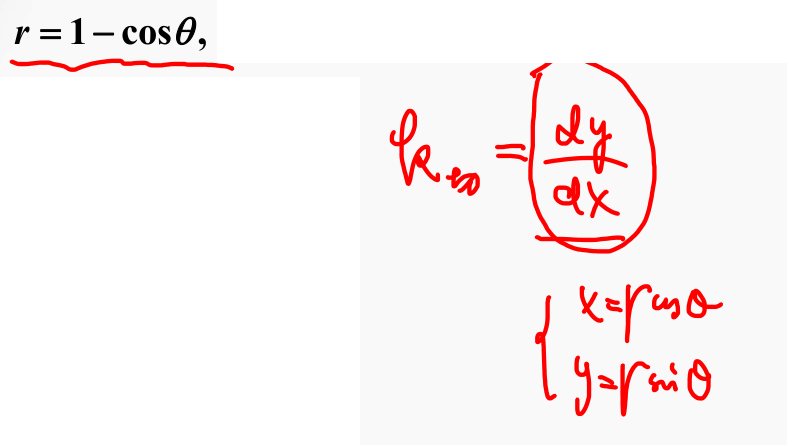 r = 1 − cosθ,
k = dy/dx
x = r cos θ
y = r sin θ